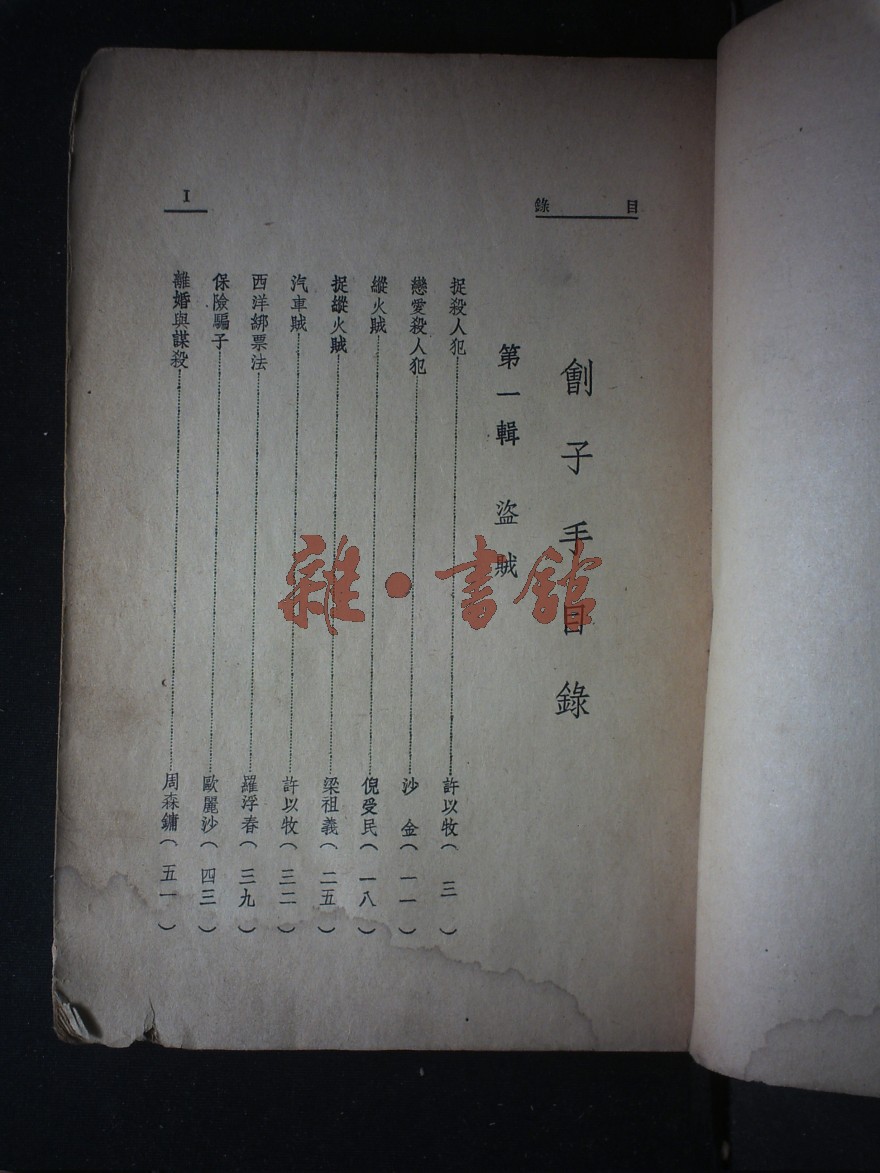 目錄
I
劊子手目錄
第一輯 盜賊
捉殺人犯……許以牧(三)
戀愛殺人犯……沙金(一一)
縱火賊……倪受民(一八)
捉縱火賊……梁祖義(二五)
汽車賊……許以牧(三二)
西洋綁票法……羅浮春(三九)
保險騙子……歐麗沙(四三)
離婚與謀殺……周森鏞(五一)
雜·書館